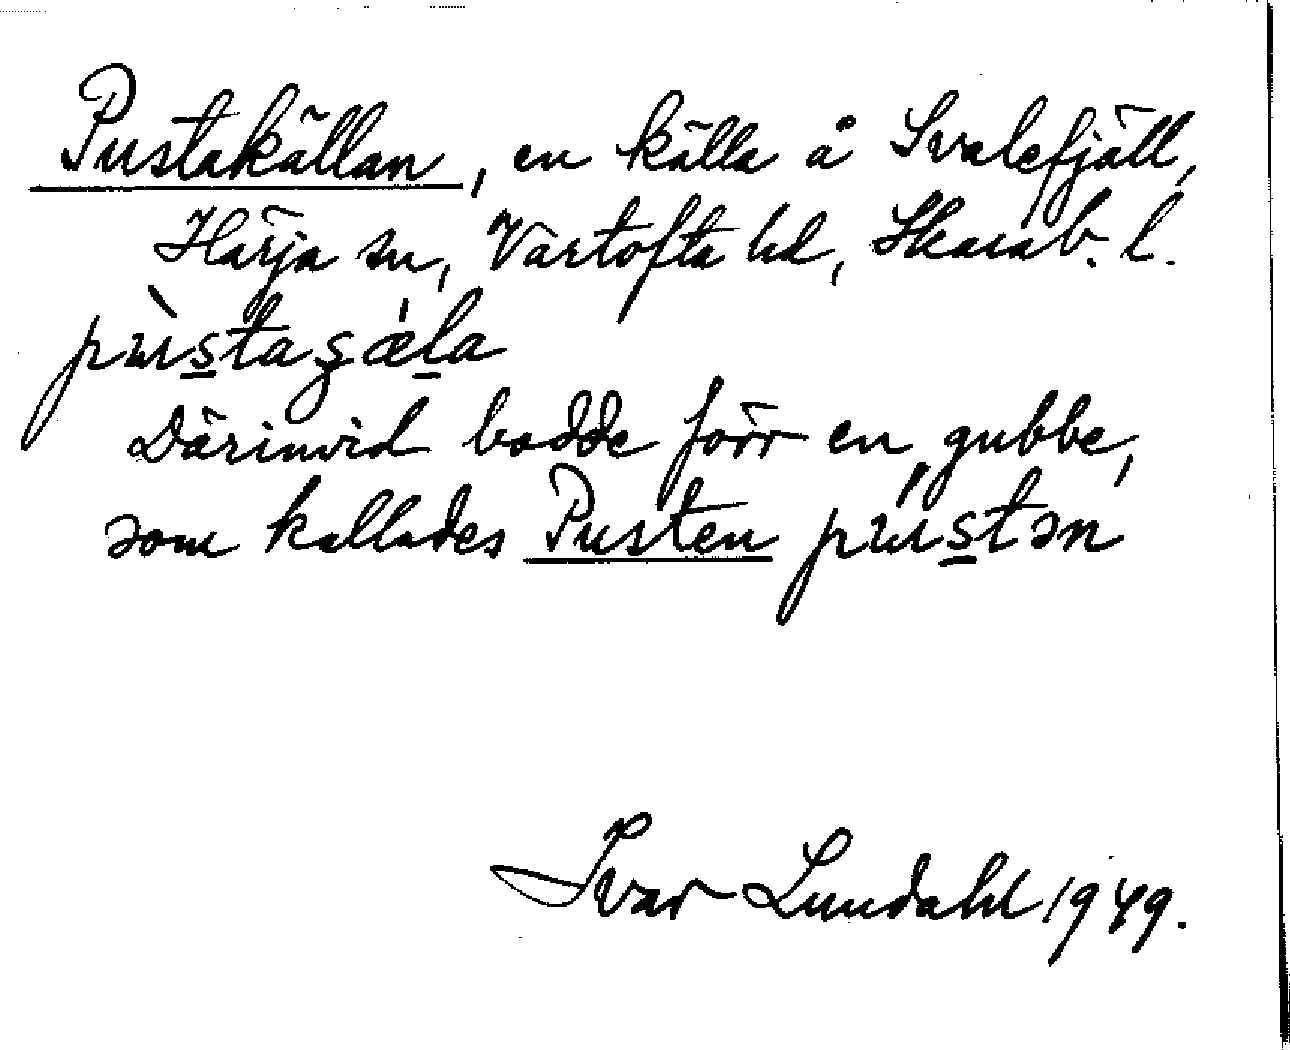 Pustakällan, en källa å Svalefjäll,
Härja sn, Vartofta hd, Skarab. l.
pùstaʂǽla
Därinvid bodde förr en gubbe,
som kallades Pusten pústən
Ivar Lundahl 1949.